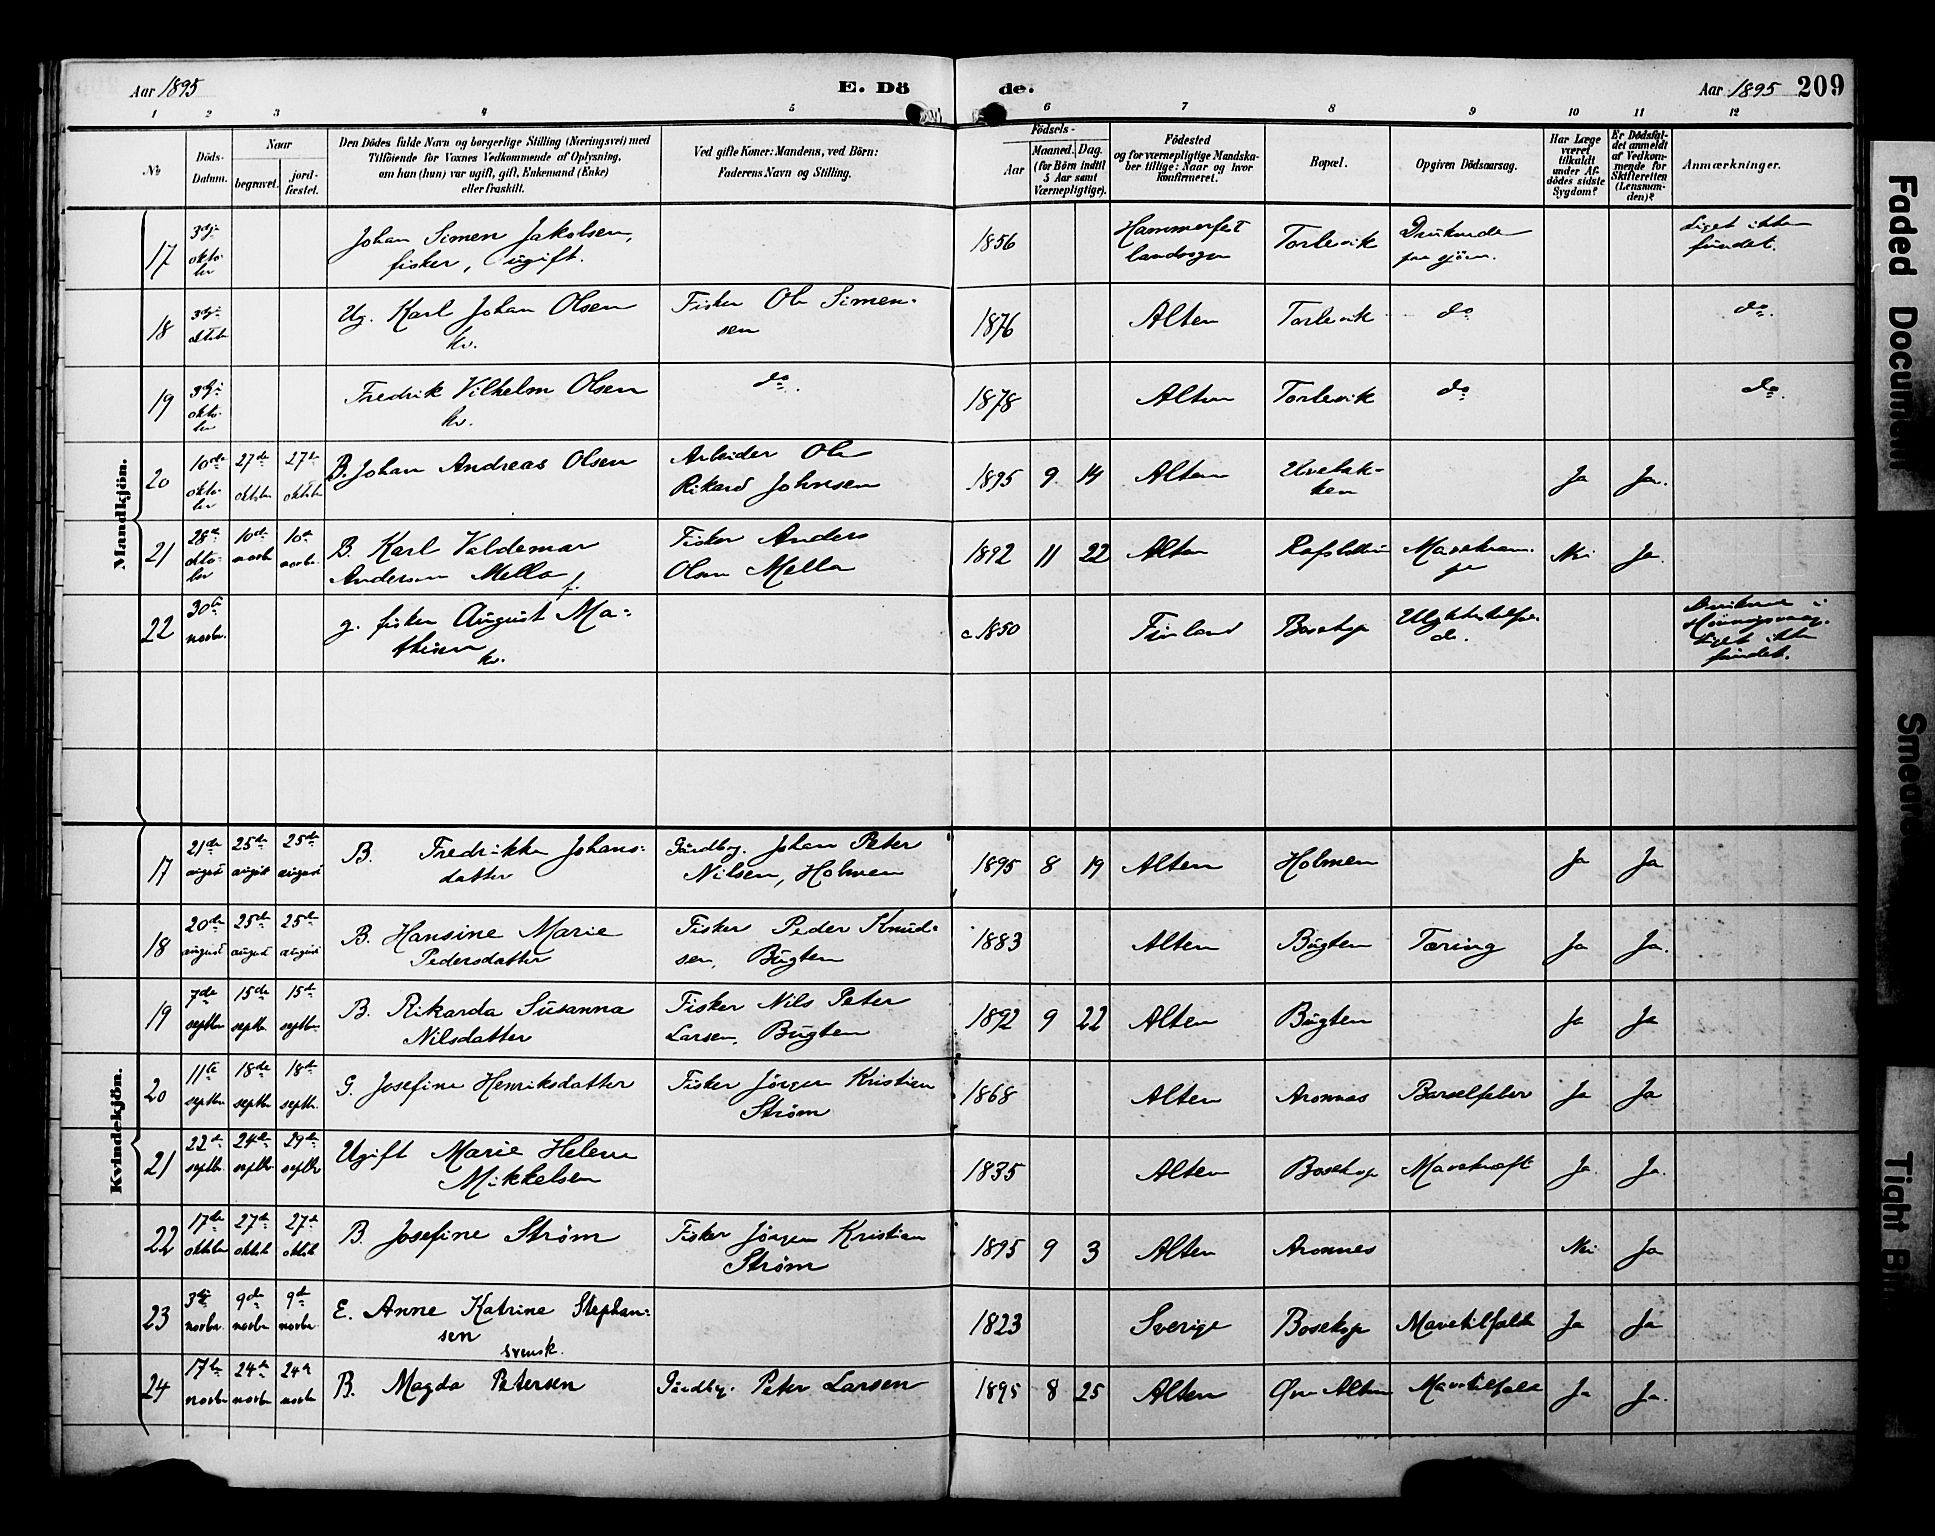 Aar 1895
E. Dö
de.
Aar 1895 209
1 2 3 4 5 6 7 8 9 10 11 12
№
Döds-
Datum.
Naar
begravet.
jord-
fæstet.
Den Dödes fulde Navn og borgerlige Stilling (Næringsvei) med
Tilföiende for Voxnes Vedkommende af Oplysning,
om han (hun) var ugift, gift, Enkemand (Enke)
eller fraskilt.
Ved gifte Koner: Mandens, ved Börn:
Faderens Navn og Stilling.
Födsels-
Aar
Maaned. Dag.
(for Börn indtil
5 Aar samt
Værnepligtige).
Födested
og for værnepligtige Mandska-
ber tillige: Naar og hvor
konfirmeret.
Bopæl.
Opgiven Dödsaarsag.
Har Læge
været
tilkaldt
under Af-
dödes sidste
Sygdom?
Er Dödsfal-
det anmeldt
af Vedkom-
mende for
Skifteretten
(Lensman-
den)?
Anmærkninger.
Mandkjön.
17 3die oktober Johan Simen Jakobsen, fisker, ugift. 1856 Hammerfest landsogn Torlevik Druknede paa sjøen. Liget ikke fundet.
18 3die oktober Ug. Karl Johan Olsen kv. Fisker Ole Simen-sen 1876 Alten Torlevik do do.
19 3die oktober Fredrik Vilhelm Olsen kv. do. 1878 Alten Torlevik do do.
20 10de oktober 27de oktober 27de oktober B. Johan Andreas Olsen Arbeider Ole Rikard Johnsen 1895 9 14 Alten Ja Ja.
21 28de oktober 10de novbr 10de novbr. B. Karl Valdemar Andersen Mella f. Fisker Anders Olsen Mella 1892 11 22 Alten Nei Ja.
22 30te novbr. g. fisker August Ma-thisen kv. c 1850 Finland Bosekop Liget ikke fundet.
Kvindekjön.
17 21de august 25de august 25de august B. Fredrikke Johans-datter Gårdbrg. Johan Peter Nilsen, Holmen 1895 8 19 Alten Holmen Ja Ja
18 20de august 25de august 25de august B. Hansine Marie Pedersdatter Fisker Peder Knud-sen, Bugten 1883 Alten Bugten Tæring Ja Ja.
19 7de septbr 15de septbr. 15de septbr. B. Rikarda Susanna Nilsdatter Fisker Nils Peter Larsen, Bugten 1892 9 22 Alten Bugten Ja Ja
20 11te septbr 18de septbr 18de septbr. G. Josefine Henriksdatter Fisker Jörgen Kristian Strøm 1868 Alten Aronnes Barselfeber Ja Ja
21 22de septbr. 24de septbr 29de septbr Ugift Marie Helene Mikkelsen 1835 Alten Bosekop Mavekræft Ja. Ja.
22 17de oktober 27de oktbr 27de oktbr B. Josefine Strøm Fisker Jörgen Kristian Strøm 1895 9 3 Alten Aronnes Nei Ja
23 3die novbr. 9de novbr 9de novbr. E. Anne Katrine Stephan-sen svensk. 1823 Sverige Bosekop Mavetilfælde Ja Ja
24 17de novbr 24de novbr 24de novbr B. Magda Petersen Gårdbrg. Peter Larsen 1895 8 25 Alten Øvre Alten Mavetilfælde Ja Ja.
Faded Document
Smeared
Tight Bin